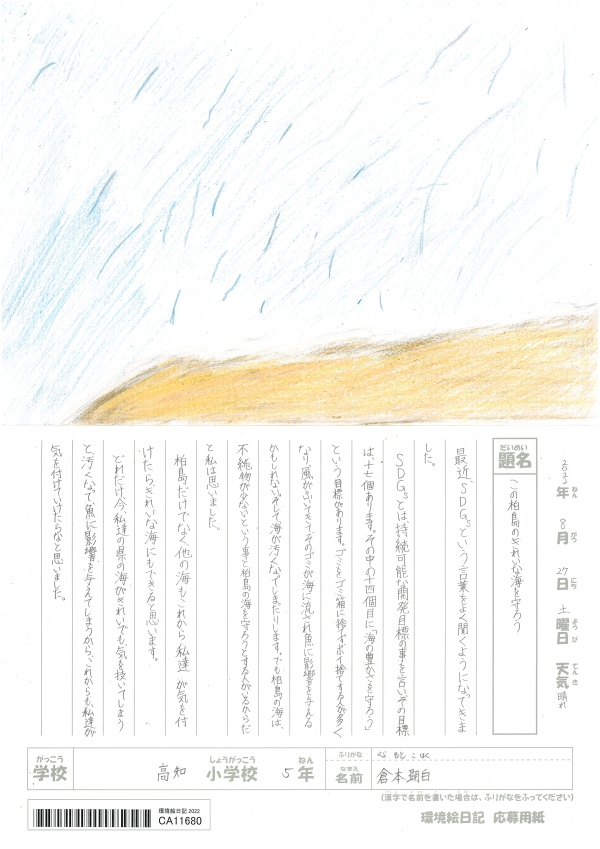 2022年 8月 27日 土曜日 天気 晴れ
ねん がつ にち ようび てんき
だいめい
題名 この柏島のきれいな海を守ろう
最近、SDGsという言葉をよく聞くようになってきま
した。
SDGsとは、持続可能な開発目標の事を言い、その目標
は、十七個あります。その中の十四個目に「海の豊かさを守ろう」
という目標があります。ゴミをゴミ箱に捨てずポイ捨てする人が多く
なり、風がふいてきてそのゴミが海に流され魚に影響を与える
かもしれないそして海が汚くなってしまったりします。でも柏島の海は、
不純物が少ないという事と柏島の海を守ろうとする人がいるからだ
と私は思いました。
柏島だけでなく他の海もこれから私達が気を付
けたらきれいな海にもできると思います。
どれだけ今、私達の県の海がきれいでも気を抜いてしまう
と、汚くなって魚に影響を与えてしまうから、これからも私達が
気を付けていけたらなと思いました。
がっこう しょうがっこう ねん
学校 高知 小学校 5年
ふりがな くらもと こはく
なまえ
名前 倉本 白
(漢字で名前を書いた場合は、ふりがなをふってください)
環境絵日記 2022
CA11680
環境絵日記 応募用紙